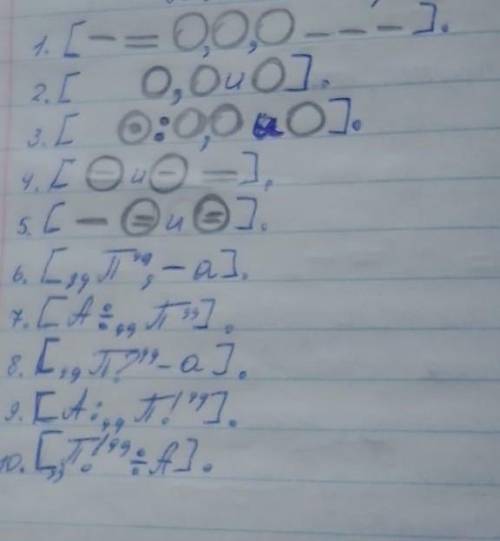 1. [— = O, O, O — — —].
2. [ O, O и O].
3. [ ⊙: O, O и O].
4. [⊖ и ⊖ =].
5. [— ⊜ и ⊜].
6. [„П", — а].
7. [А÷„П"].
8. [„П?" — а].
9. [А:„П!"].
10. [„П!"÷А].